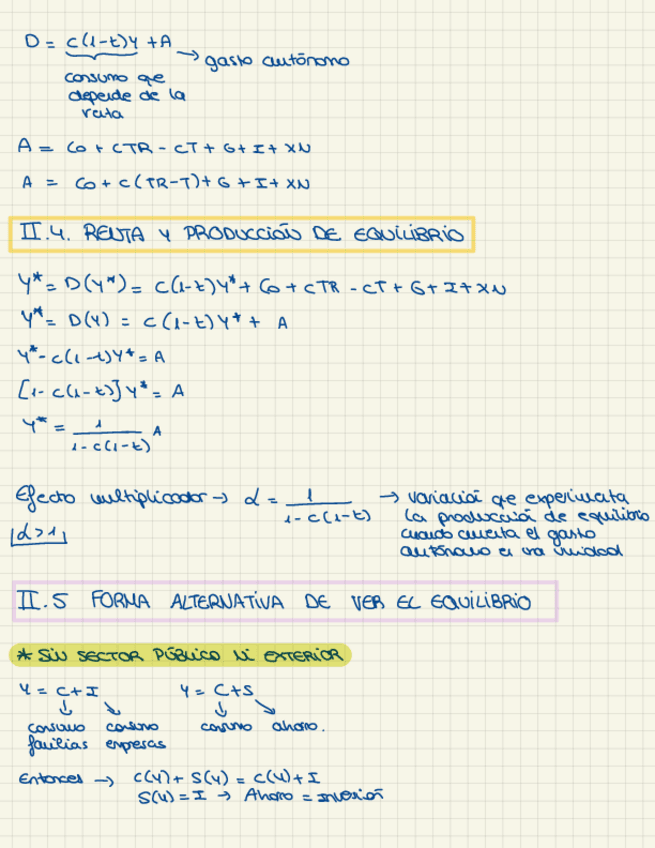 D = c(1-t)Y + A → gasto autónomo
consumo que
depende de la
renta
A = Co + cTR - cT + G + I + XN
A = Co + c(TR-T) + G + I + XN
II.4. RENTA Y PRODUCCIÓN DE EQUILIBRIO
Y* = D(Y*) = c(1-t)Y* + Co + cTR - cT + G + I + XN
Y* = D(Y) = c(1-t)Y* + A
Y* - c(1-t)Y* = A
[1-c(1-t)] Y* = A
Y* = 1/(1-c(1-t)) A
Efecto multiplicador → α = 1/(1-c(1-t)) → variación que experimenta
la producción de equilibrio
cuando aumenta el gasto
autónomo en una unidad
|α>1|
II.5 FORMA ALTERNATIVA DE VER EL EQUILIBRIO
* SIN SECTOR PÚBLICO NI EXTERIOR
Y = C + I Y = C + S
↓ ↘ ↓ ↘
consumo consumo consumo ahorro.
familias empresas
Entonces → C(Y) + S(Y) = C(Y) + I
S(Y) = I → Ahorro = inversión